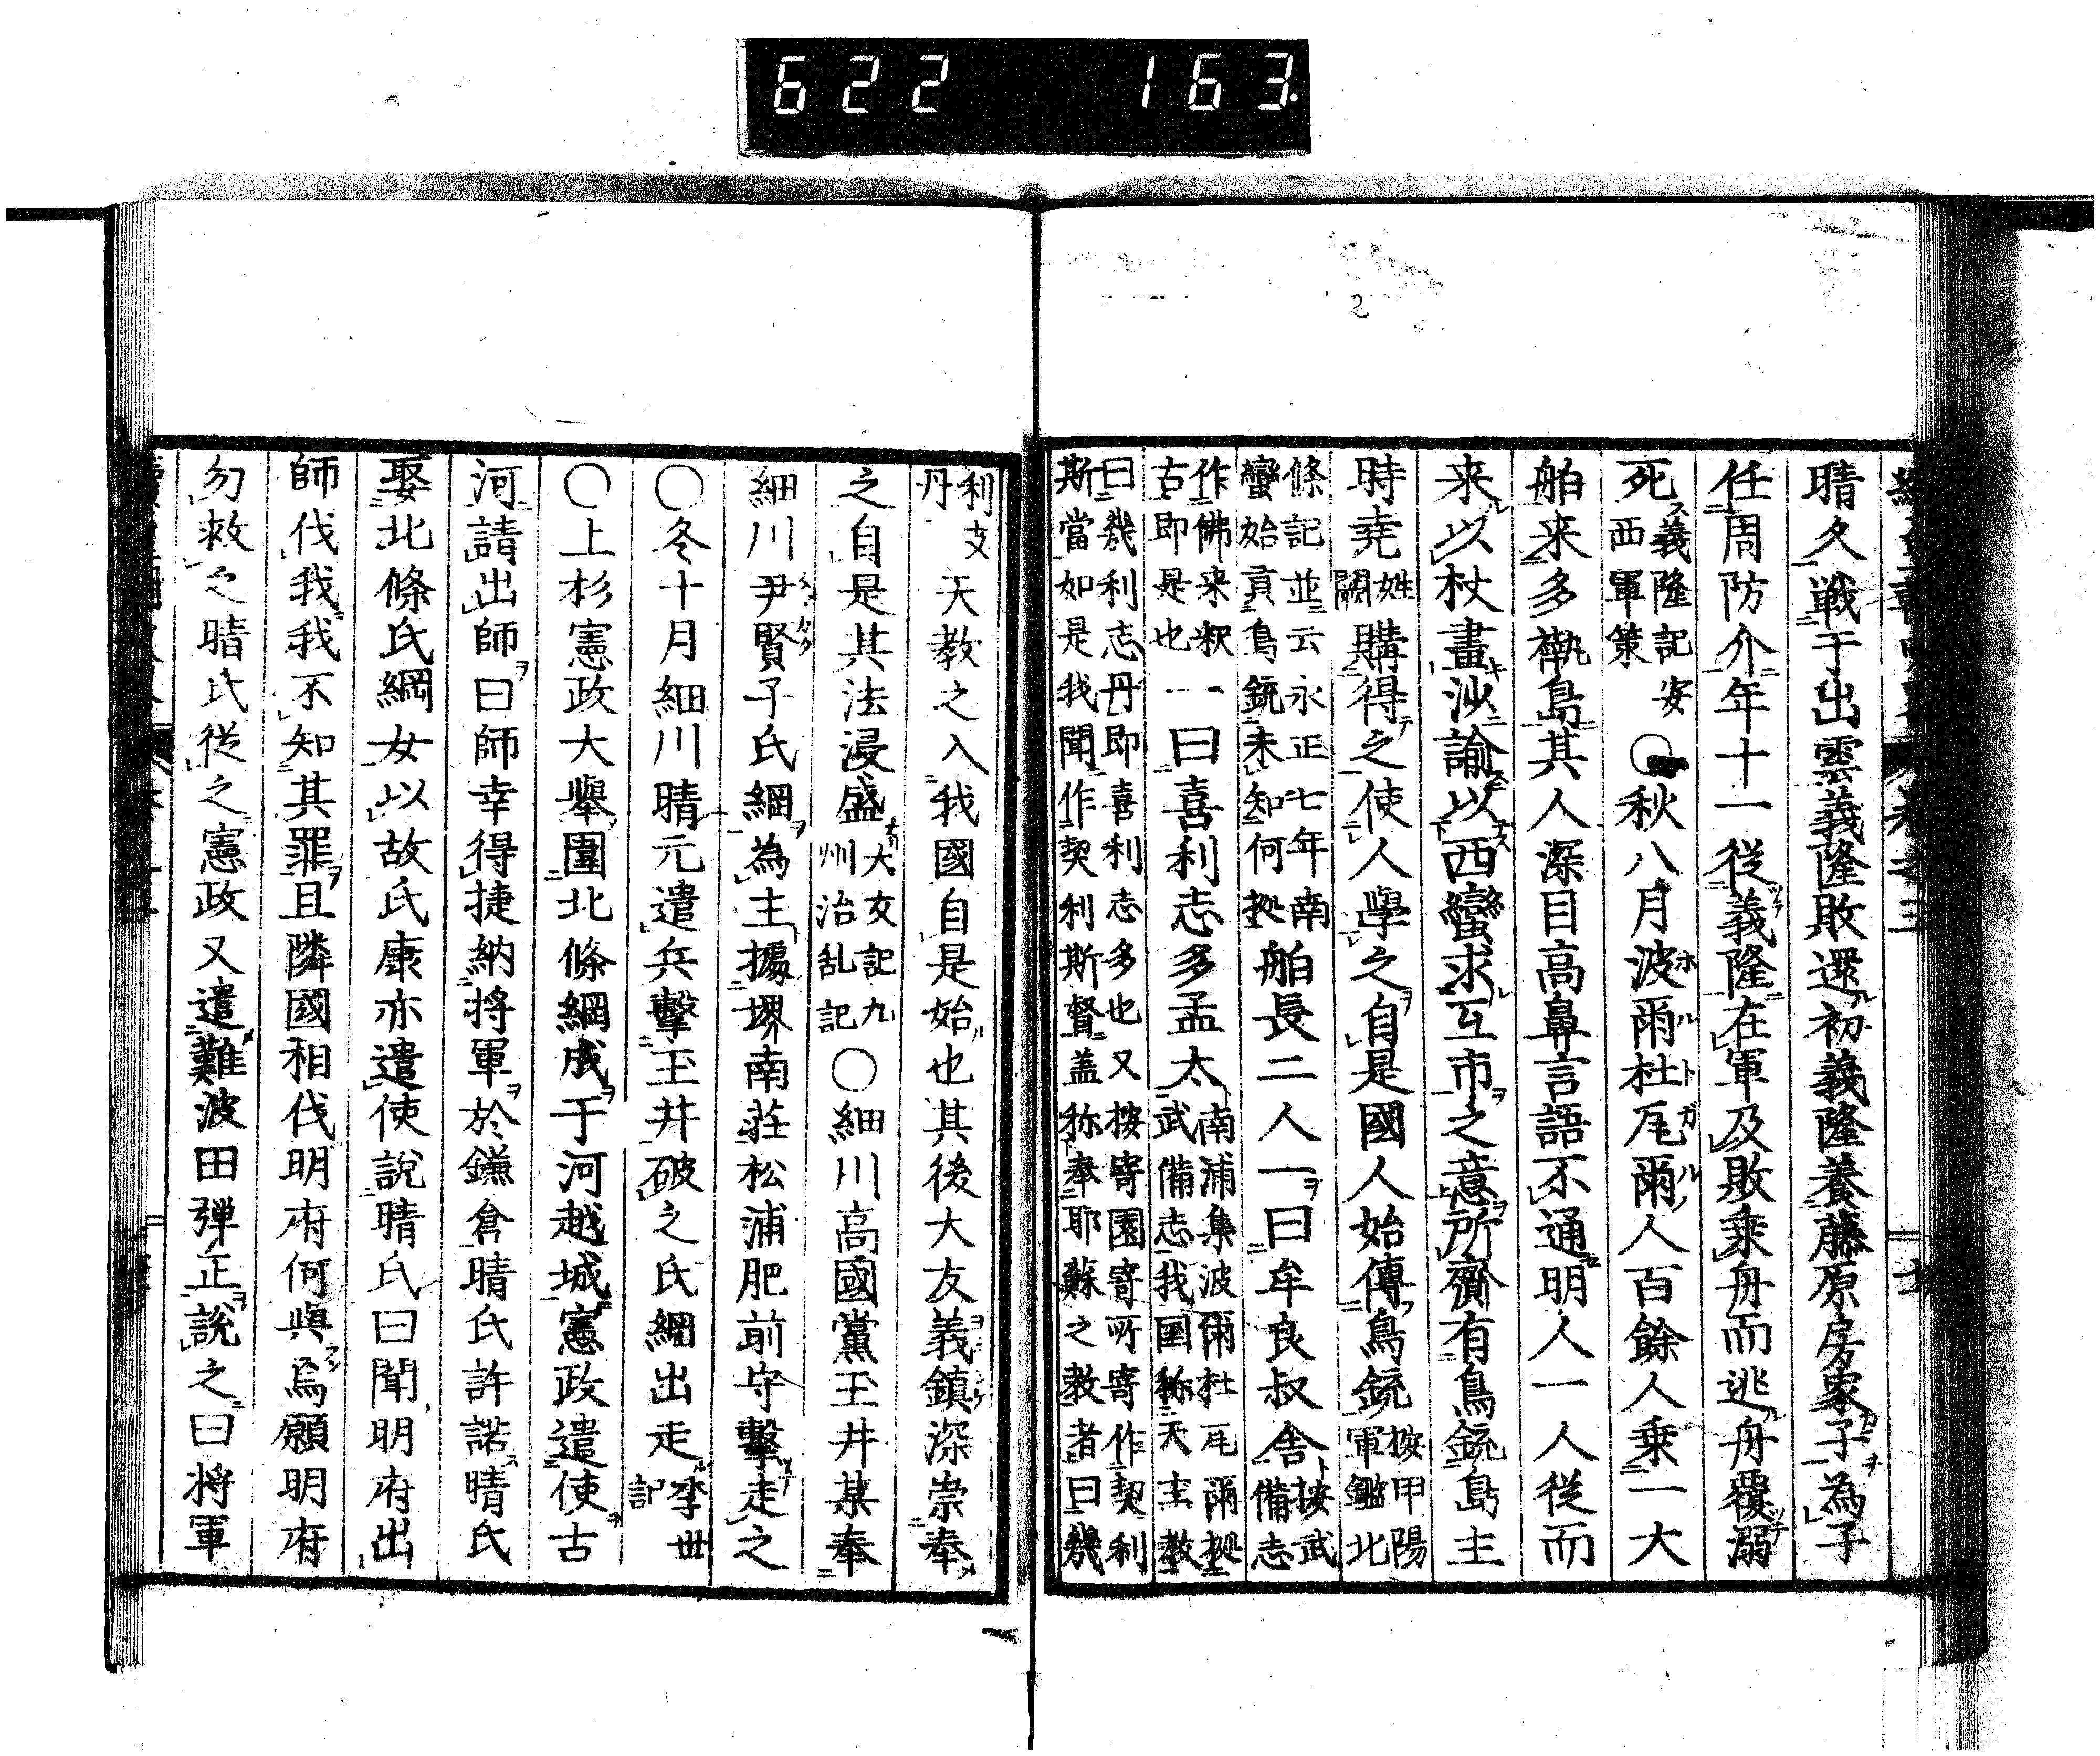 622 163.
晴久戦于出雲義隆敗還初義隆養藤原房家子為子
任周防介年十一従義隆在軍及敗乗舟而逃舟覆溺
死義隆記安西軍策○秋八月波爾杜瓦爾人百餘人乗一大
舶来多褹島其人深目高鼻言語不通明人一人従而
来以杖畫沙諭以西蠻求互市之意所齎有鳥銃島主
時堯姓闕購得之使人學之自是國人始傳鳥銃按甲陽軍鑑北
條記並云永正七年南蠻始貢鳥銃未知何拠舶長二人一曰牟良叔舎按武備志
作佛来釈古即是也一曰喜利志多孟太南浦集波爾杜瓦爾拠武備志我国称天主教
曰幾利志丹即喜利志多也又按寄園寄所寄作契利斯當如是我聞作契利斯督蓋称奉耶蘇之教者曰幾
利支丹天教之入我國自是始也其後大友義鎮深崇奉
之自是其法浸盛大友記九州治乱記○細川高國黨玉井某奉
細川尹賢子氏綱為主據堺南荘松浦肥前守撃走之
○冬十月細川晴元遣兵撃玉井破之氏綱出走季世記
○上杉憲政大舉圍北條綱成于河越城憲政遣使古
河請出師曰師幸得捷納将軍於鎌倉晴氏許諾晴氏
娶北條氏綱女以故氏康亦遣使説晴氏曰聞明府出
師伐我我不知其罪且隣國相伐明府何與焉願明府
勿救之晴氏従之憲政又遣難波田弾正説之曰将軍